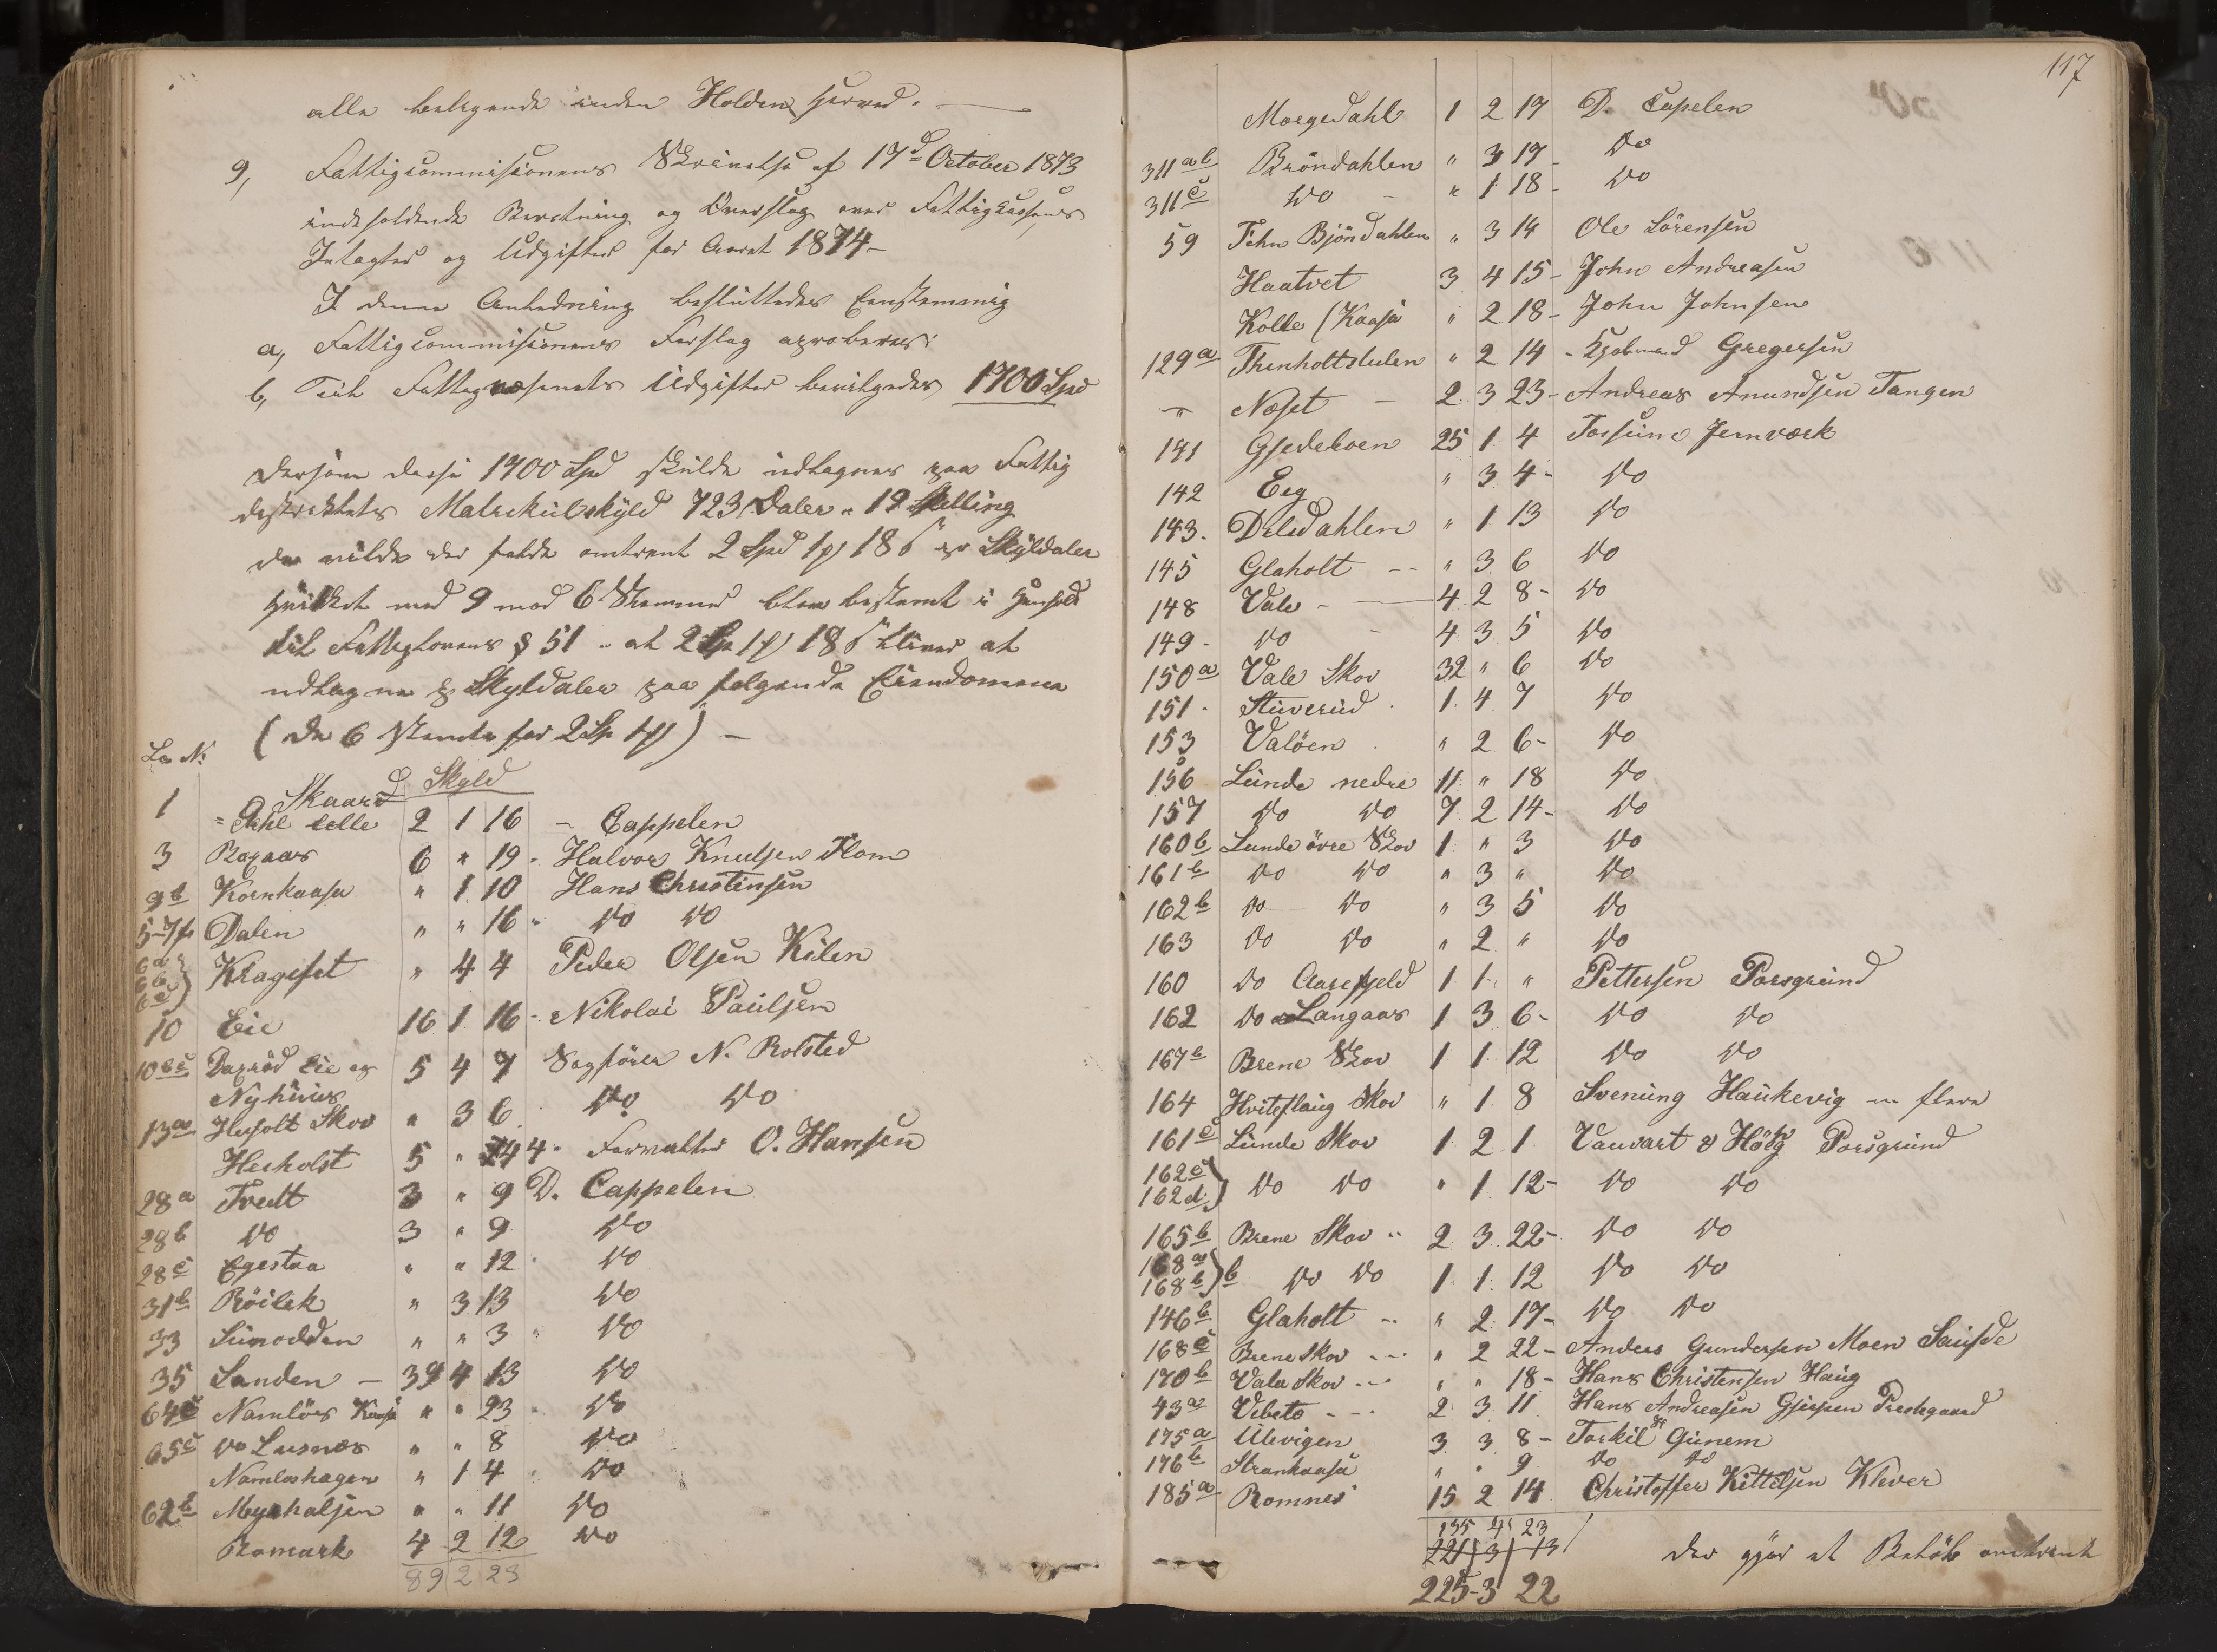 alle beliggende inden Holden Herred. —
9, Fattigcommisionens Skrivelse af 17d October 1873
indeholdende Beretning og Overslag over Fattigkassens
Intægter og Udgifter for Aaret 1874 –
I denne Anledning besluttedes Eenstemmig
a, Fattigcommisionens Forslag aproberes:
b, Til Fattigvæsenets Udgifter bevilgedes 1700 Spd
dersom disse 1700 Spd skulde udtagnes paa Fattig
destrektets Matrikulskyld 723 Daler " 19 Skilling
da vilde der falde omtrent 2 Spd 1 18 pr Skyldaler
hvilket med 9 mod 6 Stemmer blev bestemt i Henhold
til Fattiglovens § 51 " at 2 Sp 1 18 bliver at
udtagne pr Skyldaler paa følgende Eiendomme
(de 6 stemte for 2 Sp 1) –
Lø N: Skyld
1 Skaard
" Dahl lille 2 1 16 – Cappelen
3 6 " 19 - Halvor Knudsen Flom
9b Kornkaasa " 1 10 Hans Christensen
5-7 Dalen " " 16 " Do Do
6a 6b 6c Krageset " 4 4 Peder Olsen Kilen
10 Eie 16 1 16 - Nikolai Paulsen
10bc Eie og 5 4 7 Sagfører N. Rolsted
Nyhuus
13a Skov " 3 6 Do Do
Herholst 5 " 4 - Forvalter O. Hansen
28a Tvedt 3 " 9 D. Cappelen
28b Do 3 " 9 Do
28c Egestaa " " 12 - Do
31b Röilek " 3 13 Do
33 " " 3 " Do
35 Landen – 39 4 13 Do
64c Namløs Kaasa " " 23 - Do
65c Do Lusnæs " " 8 Do
Namløshagen " 1 4 - Do
62b Myrhalsen " " 11 Do
Romark 4 2 12 Do
89 2 23
117
Moegedahl 1 2 17 D. Capelen
311ab Bröndahlen " 3 17 – Do
311c Do – " 1 18 – Do
59 Tehn Bjöndahlen " 3 14 Ole Sörensen
Haatvet 3 4 15 – John Andreasen
Kolle (Kaasa " 2 18 – John Johnsen
129a " 2 14 - Gregersen
" Næset – 2 3 23 – Andreas Amundsen Tangen
141 25 1 4 Fossum Jernværk
142 Eeg " 3 4 - Do
143. Dalsdahlen " 1 13 Do
145 Glaholt -- " 3 6 Do
148 Vale - — 4 2 8 - Do
149 - Do – 4 3 5 Do
150a Vale Skov 32 " 6 Do
151 - Stuverud . 1 4 7 Do
153 Valöen . " 2 6 - Do
156 Lunde nedre 11 " 18 Do
157 Do Do 7 2 14 - Do
160b Lunde övre Skov 1 " 3 Do
161b Do Do " 3 " Do
162b Do Do " 3 5 Do
163 Do Do " 2 " Do
160 Do Aarefjeld 1 1 " Pettersen Porsgrund
162 Do Langaas 1 3 6 - Do Do
167b Brene Skov 1 1 12 Do Do
164 Hviteflaug Skov " 1 8 Svenung Haukevig m flere
161c Lunde Skov 1 2 1 Vauvart & Höeg Porsgrund
162c 162d } Do Do " 1 12 - Do Do
165b Brene Skov " 2 3 22 – Do Do
168a 168b } b Do Do 1 1 12 Do Do
146b Glaholt -- " 2 17 – Do Do
168c Brene Skov --- " 2 22 – Anders Gundersen Moen Saufde
170b Vala Skov --- " " 18 – Hans Christensen Haug
43a Vibeto --- 2 3 11 Hans Andreasen Gjerpen Prestegaard
175a Ulevigen 3 3 8 – Torkil Gunem
176b Strankaasa " " 9 Do Do
185a Romnes 15 2 14 Christoffer Kittilsen Klever
135 4 23
221 3 13
225-3 22
der gjör et Belöb omtrent